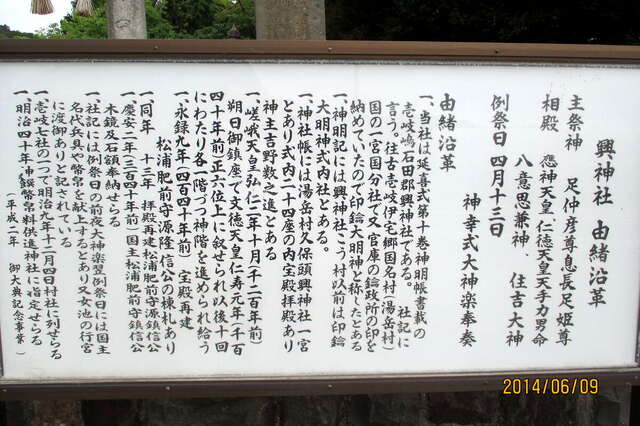 興神社 由緒沿革
主祭神 足仲彦尊息長足姫尊
相殿 応神天皇仁徳天皇天手力男命
八意思兼神、住吉大神
例祭日 四月十三日
神幸式大神楽奉奏
由緒沿革
一、当社は延喜式第十巻神明帳書載の
壱岐嶋石田郡興神社である。 社記に
言う。往古壱岐伊宅郷国名村(湯岳村)
国の一宮国分社で又官庫の鑰政所の印を
納めていたので印鑰大明神と称したとある
一、神明記には興神社こう村以前は印鑰
大明神式内社とある。
一、神社帳には湯岳村久保頭興神社一宮
とあり式内二十四座の内宝殿拝殿あり
神主吉野数之進とある
一、嵯峨天皇弘仁二年十月(千二百年前)
朔日御鎮座で文徳天皇仁寿元年(千百
四十年前)正六位上に叙せられ以後十回
にわたり各一階づつ神階を進められ給う
一、永録九年(四百四十年前)宝殿再建
松浦肥前守源隆信公の棟札あり
一、同年 十三年 拝殿再建松浦肥前守源鎮信公
一、慶安二年(三百四十年前)国主松浦肥前守鎮信公
木鏡及石額奉納せらる
一、社記には例祭日の前夜大神楽翌例祭日には国主
名代兵具や幣帛を献上するとあり又女池の行宮
に渡御ありと記されている
一、壱岐七社の一つで明治九年十二月四日村社に列せらる
一、明治四十年神饌幣帛料供進神社に指定せらる
(平成二年 御大典記念事業)
2014/06/09